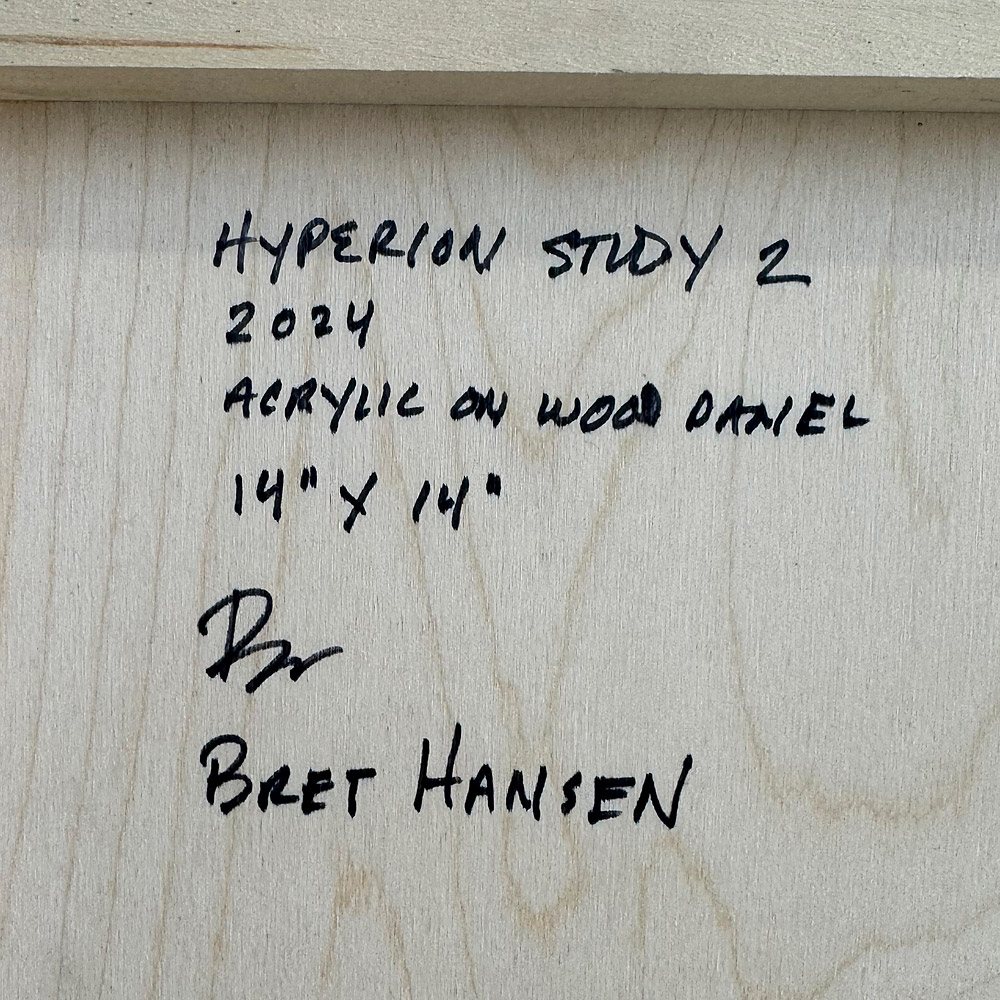 HYPERION STUDY 2
2024
ACRYLIC ON WOOD PANEL
14" X 14"
BRET HANSEN